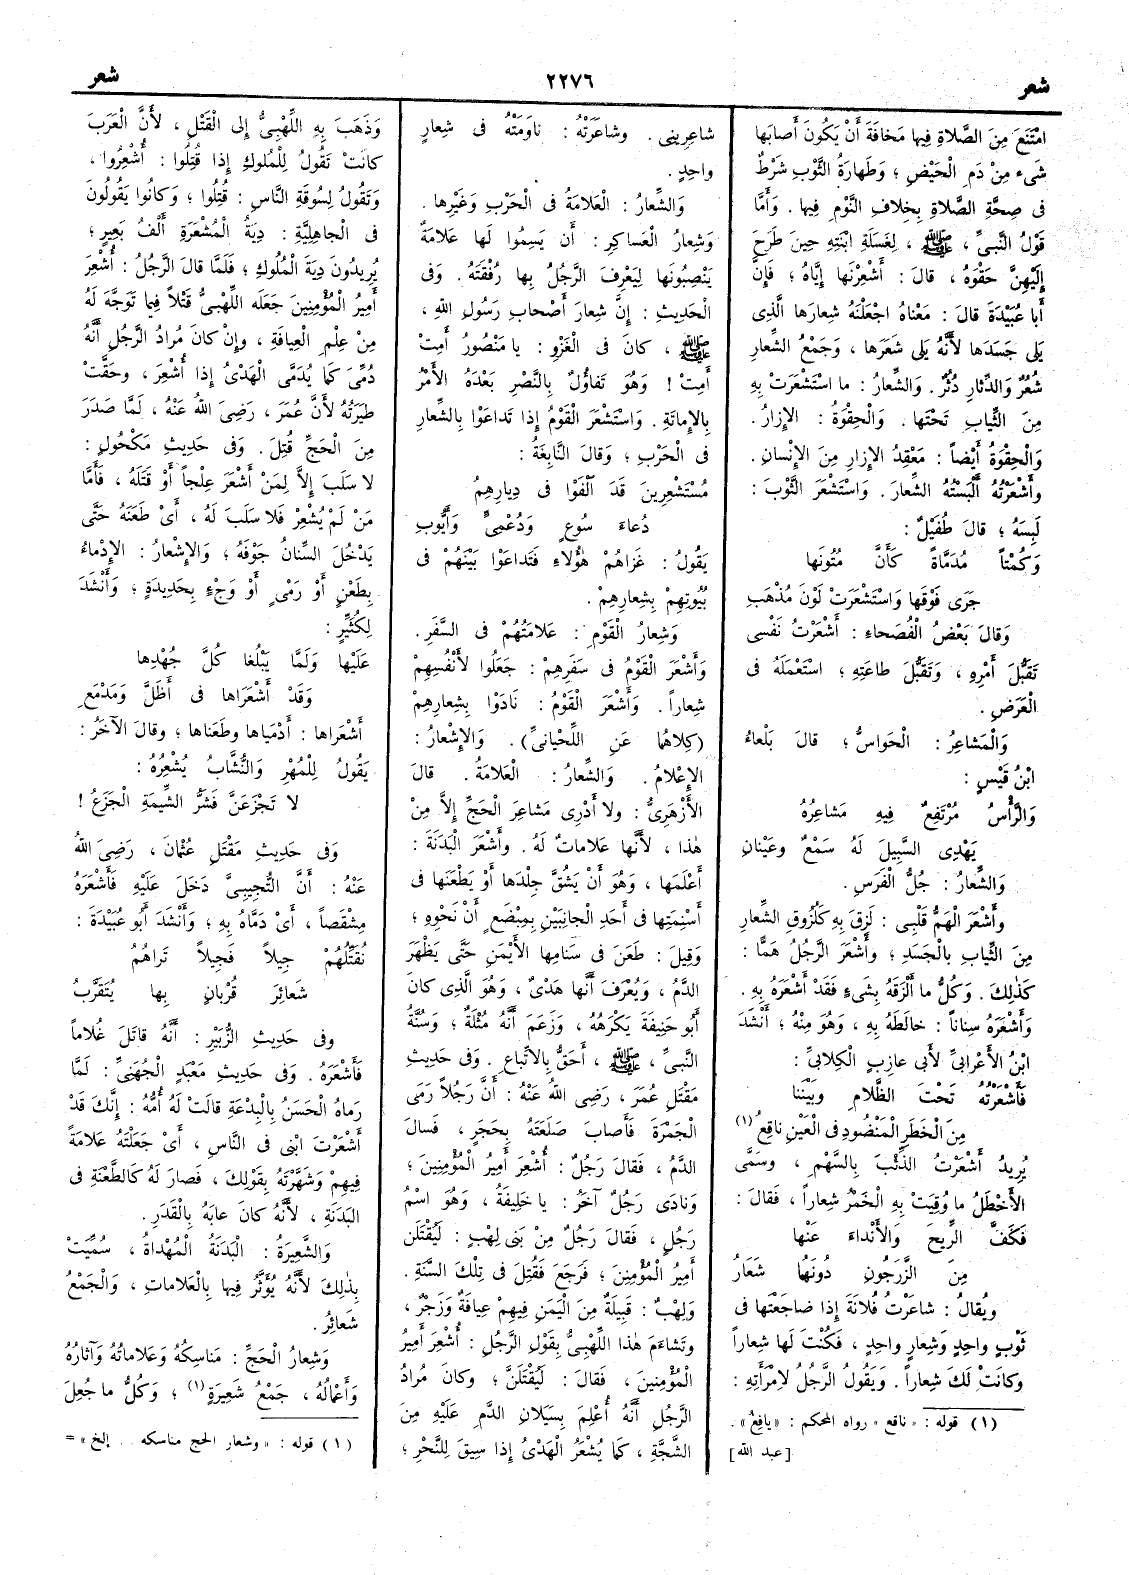 شعر
٢٢٧٦
شعر
امْتَنَعَ مِنَ الصَّلاةِ فِيها مَخافَةَ أَنْ يَكُونَ أَصابَها
شَىْء مِنْ دَمِ الْحَيْضِ ؛ وَطَهارَةُ الثَّوْبِ شَرْطٌ
فِى صِحَّةِ الصَّلاةِ بِخِلافِ النَّوْمِ فِيها . وَأَمَّا
قَوْلُ النَّبِىِّ ، ﷺ ، لِغَسَلَةِ ابْنَتِهِ حِينَ طَرَحَ
إِلَيْهِنَّ حَقْوَهُ ، قالَ : أَشْعِرْنَها إِيَّاهُ ؛ فَإِنَّ
أَبا عُبَيْدَةَ قالَ : مَعْناهُ اجْعَلْنَهُ شِعارَها الَّذِى
يَلِى جَسَدَها لأَنَّهُ يَلِى شَعَرَها ، وَجَمْعُ الشِّعارِ
شُعُرٌ وَالدِّثارِ دُثُرٌ . وَالشِّعارُ : ما اسْتَشْعَرْتَ بِهِ
مِنَ الثِّيابِ تَحْتَها . وَالْحِقْوَةُ : الإِزارُ .
وَالْحِقْوَةُ أَيْضاً : مَعْقِدُ الإِزارِ مِنَ الإِنْسانِ .
وَأَشْعَرْتُهُ أَلْبَسْتُهُ الشِّعارَ . وَاسْتَشْعَرَ الثَّوْبَ :
لَبِسَهُ ؛ قالَ طُفَيْلٌ :
وَكُمْتاً مُدَمَّاةً كَأَنَّ مُتُونَها
جَرَى فَوْقَها وَاسْتَشْعَرَتْ لَوْنَ مُذْهَبِ
وَقالَ بَعْضُ الْفُصَحاءِ : أَشْعَرْتُ نَفْسِى
تَقَبُّلَ أَمْرِهِ ، وَتَقَبُّلَ طاعَتِهِ ؛ اسْتَعْمَلَهُ فِى
الْعَرَضِ .
وَالْمَشاعِرُ : الْحَواسُّ ؛ قالَ بَلْعاءُ
ابْنُ قَيْسٍ :
وَالرَّأْسُ مُرْتَفِعٌ فِيهِ مَشاعِرُهُ
يَهْدِى السَّبِيلَ لَهُ سَمْعٌ وَعَيْنانِ
وَالشِّعارُ : جُلُّ الْفَرَسِ .
وَأَشْعَرَ الْهَمُّ قَلْبِى : لَزِقَ بِهِ كَلُزُوقِ الشِّعارِ
مِنَ الثِّيابِ بِالْجَسَدِ ؛ وَأُشْعِرَ الرَّجُلُ هَمًّا :
كَذٰلِكَ . وَكُلُّ ما أَلْزَقَهُ بِشَىْءٍ فَقَدْ أَشْعَرَهُ بِهِ .
وَأَشْعَرَهُ سِناناً : خالَطَهُ بِهِ ، وَهُوَ مِنْهُ ؛ أَنْشَدَ
ابْنُ الأَعْرابِىِّ لأَبِى عازِبٍ الْكِلابِىِّ :
فَأَشْعَرْتُهُ تَحْتَ الظَّلامِ وَبَيْنَنا
مِنَ الْخَطَرِ الْمَنْضُودِ فِى الْعَيْنِ ناقِعُ (١)
يُرِيدُ أَشْعَرْتُ الذِّئْبَ بِالسَّهْمِ ، وَسَمَّى
الأَخْطَلُ ما وُقِيَتْ بِهِ الْخَمْرُ شِعاراً ، فَقالَ :
فَكَفَّ الرِّيحَ وَالأَنْداءَ عَنْها
مِنَ الزَّرَجُونِ دُونَهُما شَعارُ
وَيُقالُ : شاعَرْتُ فُلانَةَ إِذا ضاجَعْتَها فِى
ثَوْبٍ واحِدٍ وَشِعارٍ واحِدٍ ، فَكُنْتَ لَها شِعاراً
وَكانَتْ لَكَ شِعاراً . وَيَقُولُ الرَّجُلُ لامْرَأَتِهِ :
(١) قوله : « ناقع » رواه المحكم : «يافِعُ» .
[عبد الله]
شاعِرِينِى . وَشاعَرَتْهُ : ناوَمَتْهُ فِى شِعارٍ
واحِدٍ .
وَالشِّعارُ : الْعَلامَةُ فِى الْحَرْبِ وَغَيْرِها .
وَشِعارُ الْعَساكِرِ : أَنْ يَسِمُوا لَها عَلامَةً
يَنْصِبُونَها لِيَعْرِفَ الرَّجُلُ بِها رُفْقَتَهُ . وَفِى
الْحَدِيثِ : إِنَّ شِعارَ أَصْحابِ رَسُولِ اللهِ ،
ﷺ ، كانَ فِى الْغَزْوِ : يا مَنْصُورُ أَمِتْ
أَمِتْ ! وَهُوَ تَفاؤُلٌ بِالنَّصْرِ بَعْدَهُ الأَمْرُ
بِالإِماتَةِ . وَاسْتَشْعَرَ الْقَوْمُ إِذا تَداعَوْا بِالشِّعارِ
فِى الْحَرْبِ ؛ وَقالَ النَّابِغَةُ :
مُسْتَشْعِرِينَ قَدَ الْفَوْا فِى دِيارِهِمُ
دُعاءَ سُوعٍ وَدُعْمِىٍّ وَأَيُّوبِ
يَقُولُ : غَزاهُمْ هٰؤُلاءِ فَتَداعَوْا بَيْنَهُمْ فِى
بُيُوتِهِمْ بِشِعارِهِمْ .
وَشِعارُ الْقَوْمِ : عَلامَتُهُمْ فِى السَّفَرِ .
وَأَشْعَرَ الْقَوْمُ فِى سَفَرِهِمْ : جَعَلُوا لأَنْفُسِهِمْ
شِعاراً . وَأَشْعَرَ الْقَوْمُ : نادَوْا بِشِعارِهِمْ
(كِلاهُما عَنِ اللِّحْيانِىِّ) . وَالإِشْعارُ :
الإِعْلامُ . وَالشِّعارُ : الْعَلامَةُ . قالَ
الأَزْهَرِىُّ : وَلا أَدْرِى مَشاعِرَ الْحَجِّ إِلاَّ مِنْ
هٰذا ، لأَنَّها عَلاماتٌ لَهُ . وَأَشْعَرَ الْبَدَنَةَ :
أَعْلَمَها ، وَهُوَ أَنْ يَشُقَّ جِلْدَها أَوْ يَطْعَنَها فِى
أَسْنِمَتِها فِى أَحَدِ الْجانِبَيْنِ بِمِبْضَعٍ أَنْ نَحْوِهِ ؛
وَقِيلَ : طَعَنَ فِى سَنامِها الأَيْمَنِ حَتَّى يَظْهَرَ
الدَّمُ ، وَيُعْرَفَ أَنَّها هَدْىٌ ، وَهُوَ الَّذِى كانَ
أَبُو حَنِيفَةَ يَكْرَهُهُ ، وَزَعَمَ أَنَّهُ مُثْلَةٌ ؛ وَسُنَّةُ
النَّبِىِّ ، ﷺ ، أَحَقُّ بِالاتِّباعِ . وَفِى حَدِيثِ
مَقْتَلِ عُمَرَ ، رَضِىَ اللهُ عَنْهُ : أَنَّ رَجُلاً رَمَى
الْجَمْرَةَ فَأَصابَ صَلَعَتَهُ بِحَجَرٍ ، فَسالَ
الدَّمُ ، فَقالَ رَجُلٌ : أُشْعِرَ أَمِيرُ الْمُؤْمِنِينَ ؛
وَنادَى رَجُلٌ آخَرُ : يا خَلِيفَةُ ، وَهُوَ اسْمُ
رَجُلٍ ، فَقالَ رَجُلٌ مِنْ بَنِى لِهْبٍ : لَيُقْتَلَنَّ
أَمِيرُ الْمُؤْمِنِينَ ؛ فَرَجَعَ فَقُتِلَ فِى تِلْكَ السَّنَةِ .
وَلِهْبٌ : قَبِيلَةٌ مِنَ الْيَمَنِ فِيهِمْ عِيافَةٌ وَزَجْرٌ ،
وَتَشاءَمَ هٰذا اللِّهْبِىُّ بِقَوْلِ الرَّجُلِ : أُشْعِرَ أَمِيرُ
الْمُؤْمِنِينَ ، فَقالَ : لَيُقْتَلَنَّ ؛ وَكانَ مُرادُ
الرَّجُلِ أَنَّهُ أُعْلِمَ بِسَيَلانِ الدَّمِ عَلَيْهِ مِنَ
الشَّجَّةِ ، كَما يُشْعَرُ الْهَدْىُ إِذا سِيقَ لِلنَّحْرِ ؛
وَذَهَبَ بِهِ اللِّهْبِىُّ إِلَى الْقَتْلِ ، لأَنَّ الْعَرَبَ
كانَتْ تَقُولُ لِلْمُلُوكِ إِذا قُتِلُوا : أُشْعِرُوا ،
وَتَقُولُ لِسُوقَةِ النَّاسِ : قُتِلُوا ؛ وَكانُوا يَقُولُونَ
فِى الْجاهِلِيَّةِ : دِيَةُ الْمُشْعَرَةِ أَلْفُ بَعِيرٍ ؛
يُرِيدُونَ دِيَةَ الْمُلُوكِ ؛ فَلَمَّا قالَ الرَّجُلُ : أُشْعِرَ
أَمِيرُ الْمُؤْمِنِينَ جَعَلَهُ اللِّهْبِىُّ قَتْلاً فِيما تَوَجَّهَ لَهُ
مِنْ عِلْمِ الْعِيافَةِ ، وَإِنْ كانَ مُرادُ الرَّجُلِ أَنَّهُ
دُمِّىَ كَما يُدَمَّى الْهَدْىُ إِذا أُشْعِرَ ، وَحَقَّتْ
طِيَرَتُهُ لأَنَّ عُمَرَ ، رَضِىَ اللهُ عَنْهُ ، لَمَّا صَدَرَ
مِنَ الْحَجِّ قُتِلَ . وَفِى حَدِيثِ مَكْحُولٍ :
لا سَلَبَ إِلاَّ لِمَنْ أَشْعَرَ عِلْجاً أَوْ قَتَلَهُ ، فَأَمَّا
مَنْ لَمْ يُشْعِرْ فَلا سَلَبَ لَهُ ، أَىْ طَعَنَهُ حَتَّى
يَدْخُلَ السِّنانُ جَوْفَهُ ؛ وَالإِشْعارُ : الإِدْماءُ
بِطَعْنٍ أَوْ رَمْىٍ أَوْ وَجْءٍ بِحَدِيدَةٍ ؛ وَأَنْشَدَ
لِكُثَيِّرٍ :
عَلَيْها وَلَمَّا يَبْلُغا كُلَّ جُهْدِها
وَقَدْ أَشْعَراها فِى أَظَلَّ وَمَدْمَعِ
أَشْعَراها : أَدْمَياها وَطَعَناها ؛ وَقالَ الآخَرُ :
يَقُولُ لِلْمُهْرِ وَالنُّشَّابُ يُشْعِرُهُ :
لا تَجْزَعَنَّ فَشَرُّ الشِّيمَةِ الْجَزَعُ !
وَفِى حَدِيثِ مَقْتَلِ عُثْمانَ ، رَضِىَ اللهُ
عَنْهُ : أَنَّ التُّجِيبِىَّ دَخَلَ عَلَيْهِ فَأَشْعَرَهُ
مِشْقَصاً ، أَىْ دَمَّاهُ بِهِ ؛ وَأَنْشَدَ أَبُو عُبَيْدَةَ :
نُقَتِّلُهُمْ جِيلاً فَجِيلاً تَراهُمُ
شَعائِرَ قُرْبانٍ بِها يُتَقَرَّبُ
وَفِى حَدِيثِ الزُّبَيْرِ : أَنَّهُ قاتَلَ غُلاماً
فَأَشْعَرَهُ . وَفِى حَدِيثِ مَعْبَدٍ الْجُهَنِىِّ : لَمَّا
رَماهُ الْحَسَنُ بِالْبِدْعَةِ قالَتْ لَهُ أُمُّهُ : إِنَّكَ قَدْ
أَشْعَرْتَ ابْنِى فِى النَّاسِ ، أَىْ جَعَلْتَهُ عَلامَةً
فِيهِمْ وَشَهَّرْتَهُ بِقَوْلِكَ ، فَصارَ لَهُ كَالطَّعْنَةِ فِى
الْبَدَنَةِ ، لأَنَّهُ كانَ عابَهُ بِالْقَدَرِ .
وَالشَّعِيرَةُ : الْبَدَنَةُ الْمُهْداةُ ، سُمِّيَتْ
بِذٰلِكَ لأَنَّهُ يُؤَثَّرُ فِيها بِالْعَلاماتِ ، وَالْجَمْعُ
شَعائِرُ .
وَشِعارُ الْحَجِّ : مَناسِكُهُ وَعَلاماتُهُ وَآثارُهُ
وَأَعْمالُهُ ، جَمْعُ شَعِيرَةٍ (١) ؛ وَكُلُّ ما جُعِلَ
(١) قوله : «وشعار الحج مناسكه . . إلخ» =